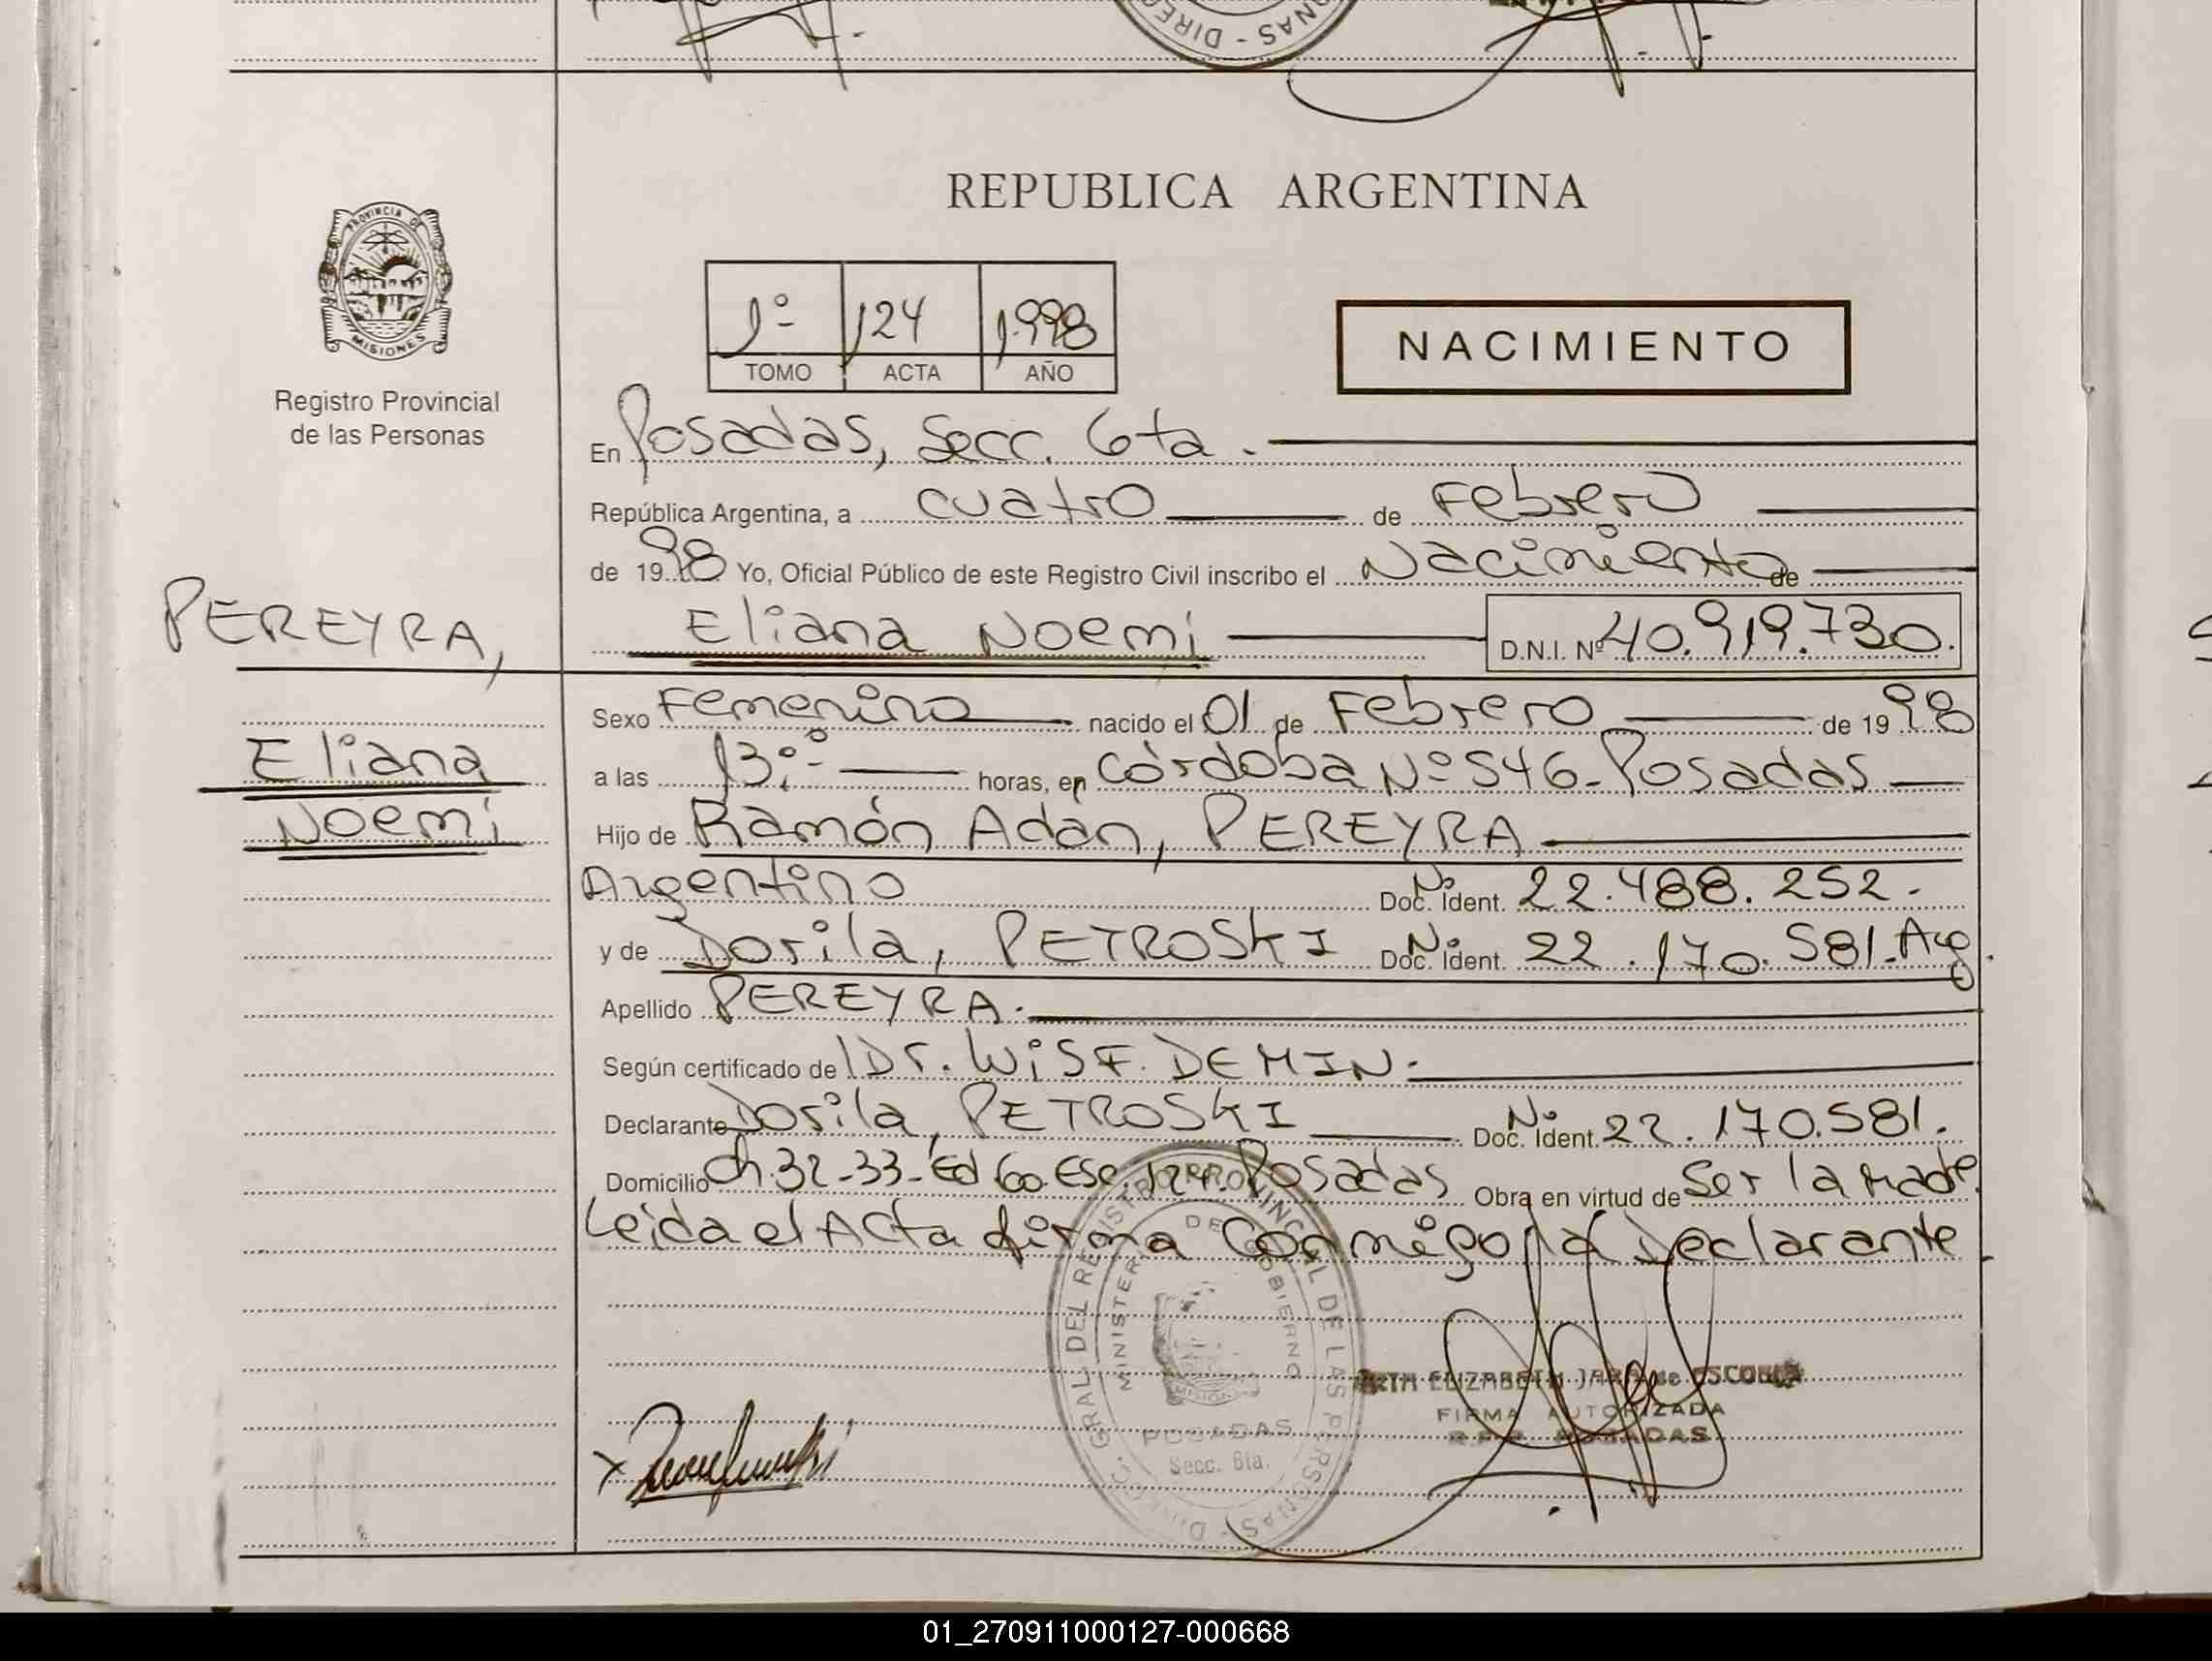 DIREC
NAS - DIREC
PROVINCIA DE
MISIONES
Registro Provincial
de las Personas
REPUBLICA ARGENTINA
1º 124 1.998
TOMO ACTA AÑO
NACIMIENTO
En Posadas, Secc. 6ta.
República Argentina, a cuatro de Febrero
de 1998 Yo, Oficial Público de este Registro Civil inscribo el Nacimiento de
PEREYRA,
Eliana Noemi D.N.I. Nº 40.919.730.
Eliana
Noemi
Sexo Femenino nacido el 01 de Febrero de 1998
a las 13:- horas, en Córdoba Nº 546-Posadas
Hijo de Ramón Adán, PEREYRA
Argentino Doc. Ident. 22.488.252.
y de Dorila, PETROSKI Doc. Ident. 22.170.581. Arg.
Apellido PEREYRA.
Según certificado de Dr. WISF. DEMIN.
Declarante Dorila, PETROSKI Doc. Ident. 22.170.581.
Domicilio Ch. 32-33-Ed 60. Esc. 124. Posadas Obra en virtud de Ser la Madre
Leida el Acta firma Conmigo la Declarante.
DIREC. GRAL. DEL REGISTRO PROVINCIAL DE LAS PERSONAS
MINISTERIO DE GOBIERNO
MISIONES
POSADAS
Secc. 6ta.
ELIZABETH JARA de
FIRMA AUTORIZADA
R.P.P. POSADAS
01_270911000127-000668